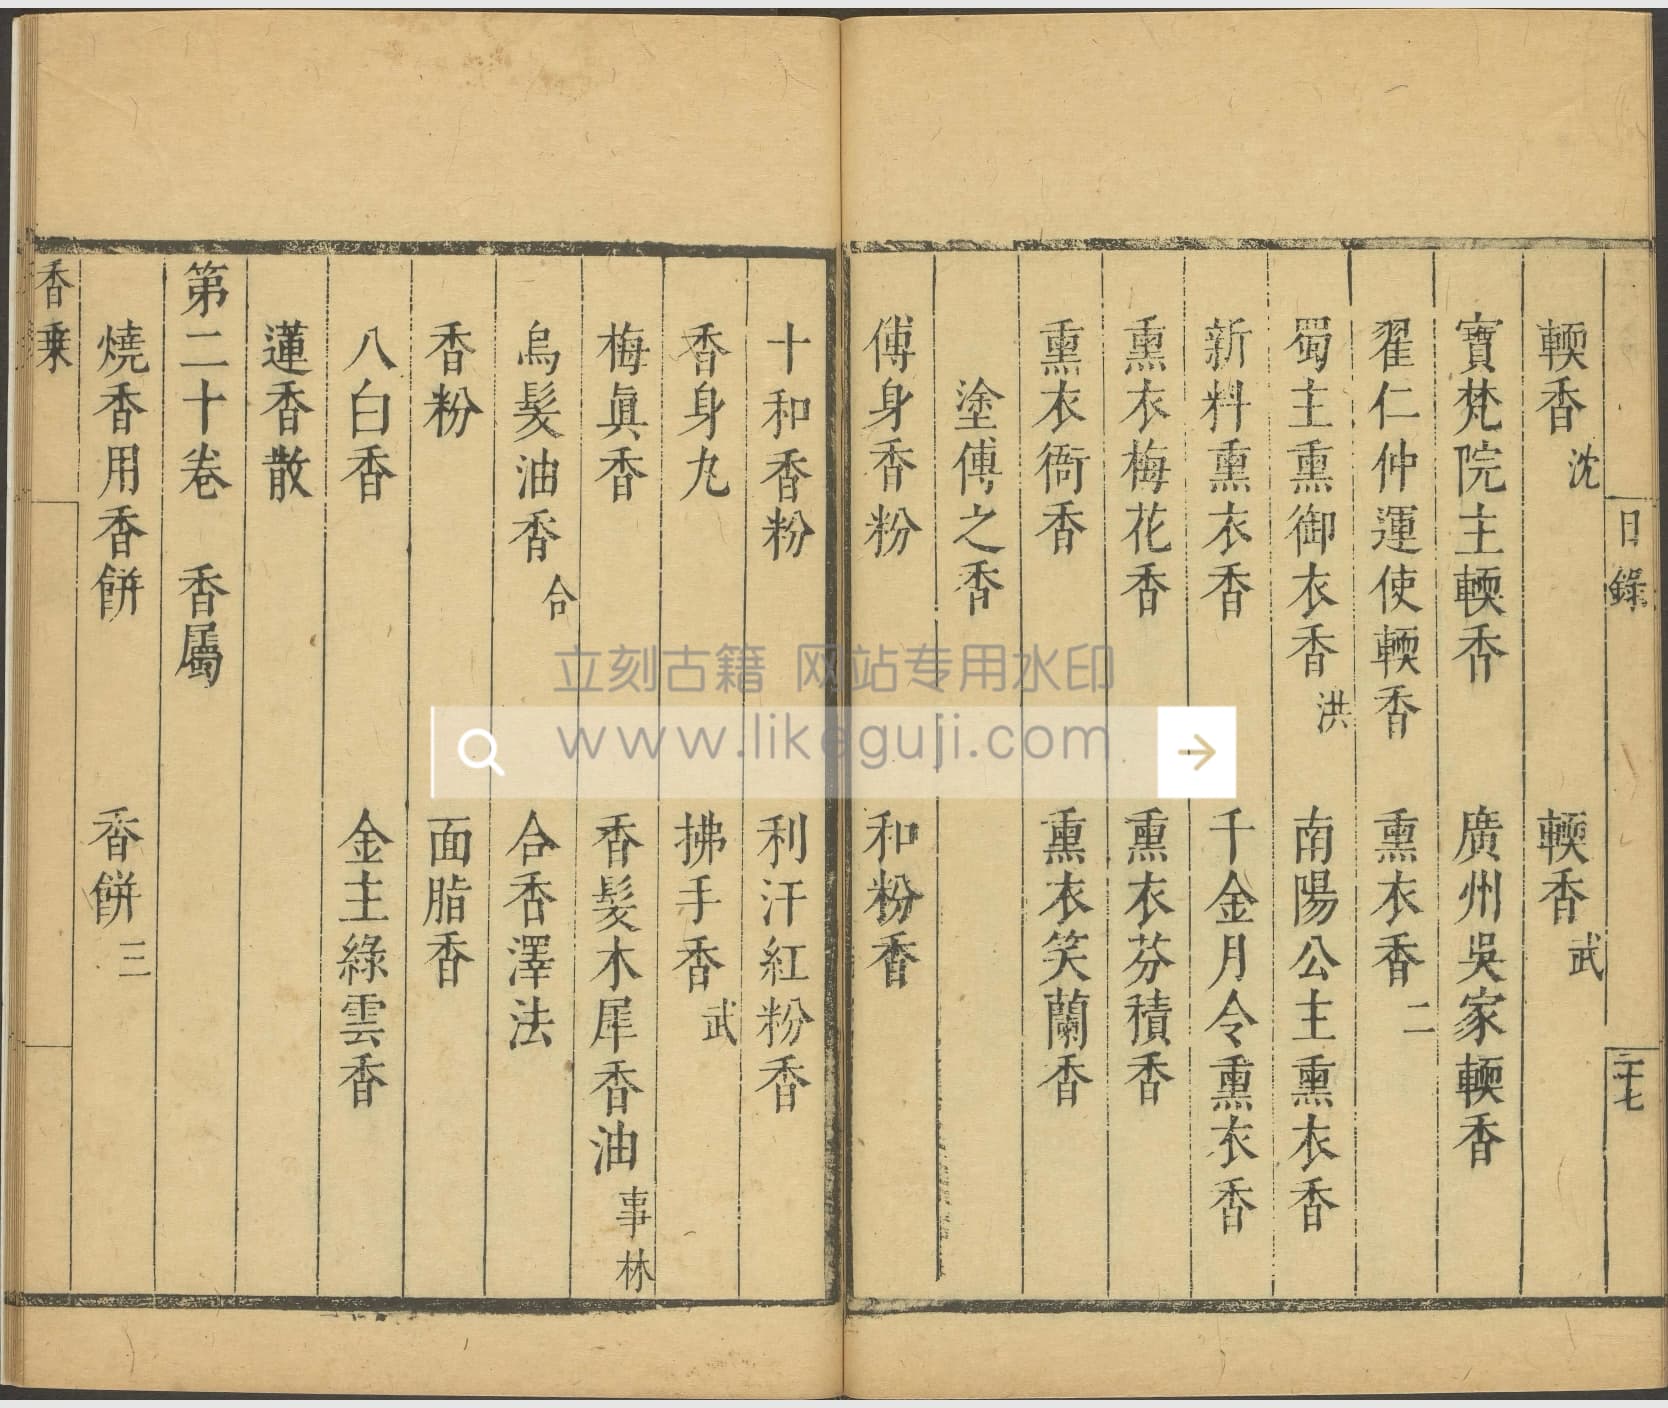 目錄
二十七
輭香 沈 輭香 武
寶梵院主輭香 廣州吳家輭香
翟仁仲運使輭香 熏衣香 二
蜀主熏御衣香 洪 南陽公主熏衣香
新料熏衣香 千金月令熏衣香
熏衣梅花香 熏衣芬積香
熏衣衙香 熏衣笑蘭香
塗傅之香
傅身香粉 和粉香
十和香粉 利汗紅粉香
香身丸 拂手香 武
梅眞香 香髮木犀香油 事林
烏髮油香 合 合香澤法
香粉 面脂香
八白香 金主綠雲香
蓮香散
第二十卷 香屬
燒香用香餅 香餅 三
香乗
立刻古籍 网站专用水印
www.likeguji.com